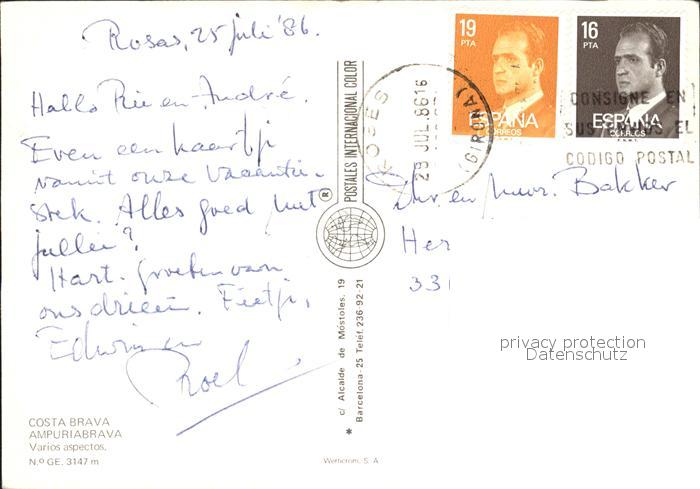 Rosas, 25 juli '86.
Hallo Rie en André.
Even een kaartje
vanuit onze vacantie-
stek. Alles goed met
jullie?
Hart. groeten van
ons drieën. Fietje,
Edwin en
Roel
COSTA BRAVA
AMPURIABRAVA
Varios aspectos.
N.º GE. 3147 m
POSTALES INTERNACIONAL COLOR
®
c/ Alcalde de Móstoles, 19
Barcelona-25 Teléf. 236-92-21
*
Wertcrom, S. A
19
PTA
ESPAÑA
CORREOS
F.N.M.T.
16
PTA
ESPAÑA
CORREOS
F.N.M.T.
ROSES
(GIRONA)
JUL. 86 16
CONSIGNE EN
EL
CODIGO POSTAL
en Mevr. Bakker
Her
33
privacy protection
Datenschutz